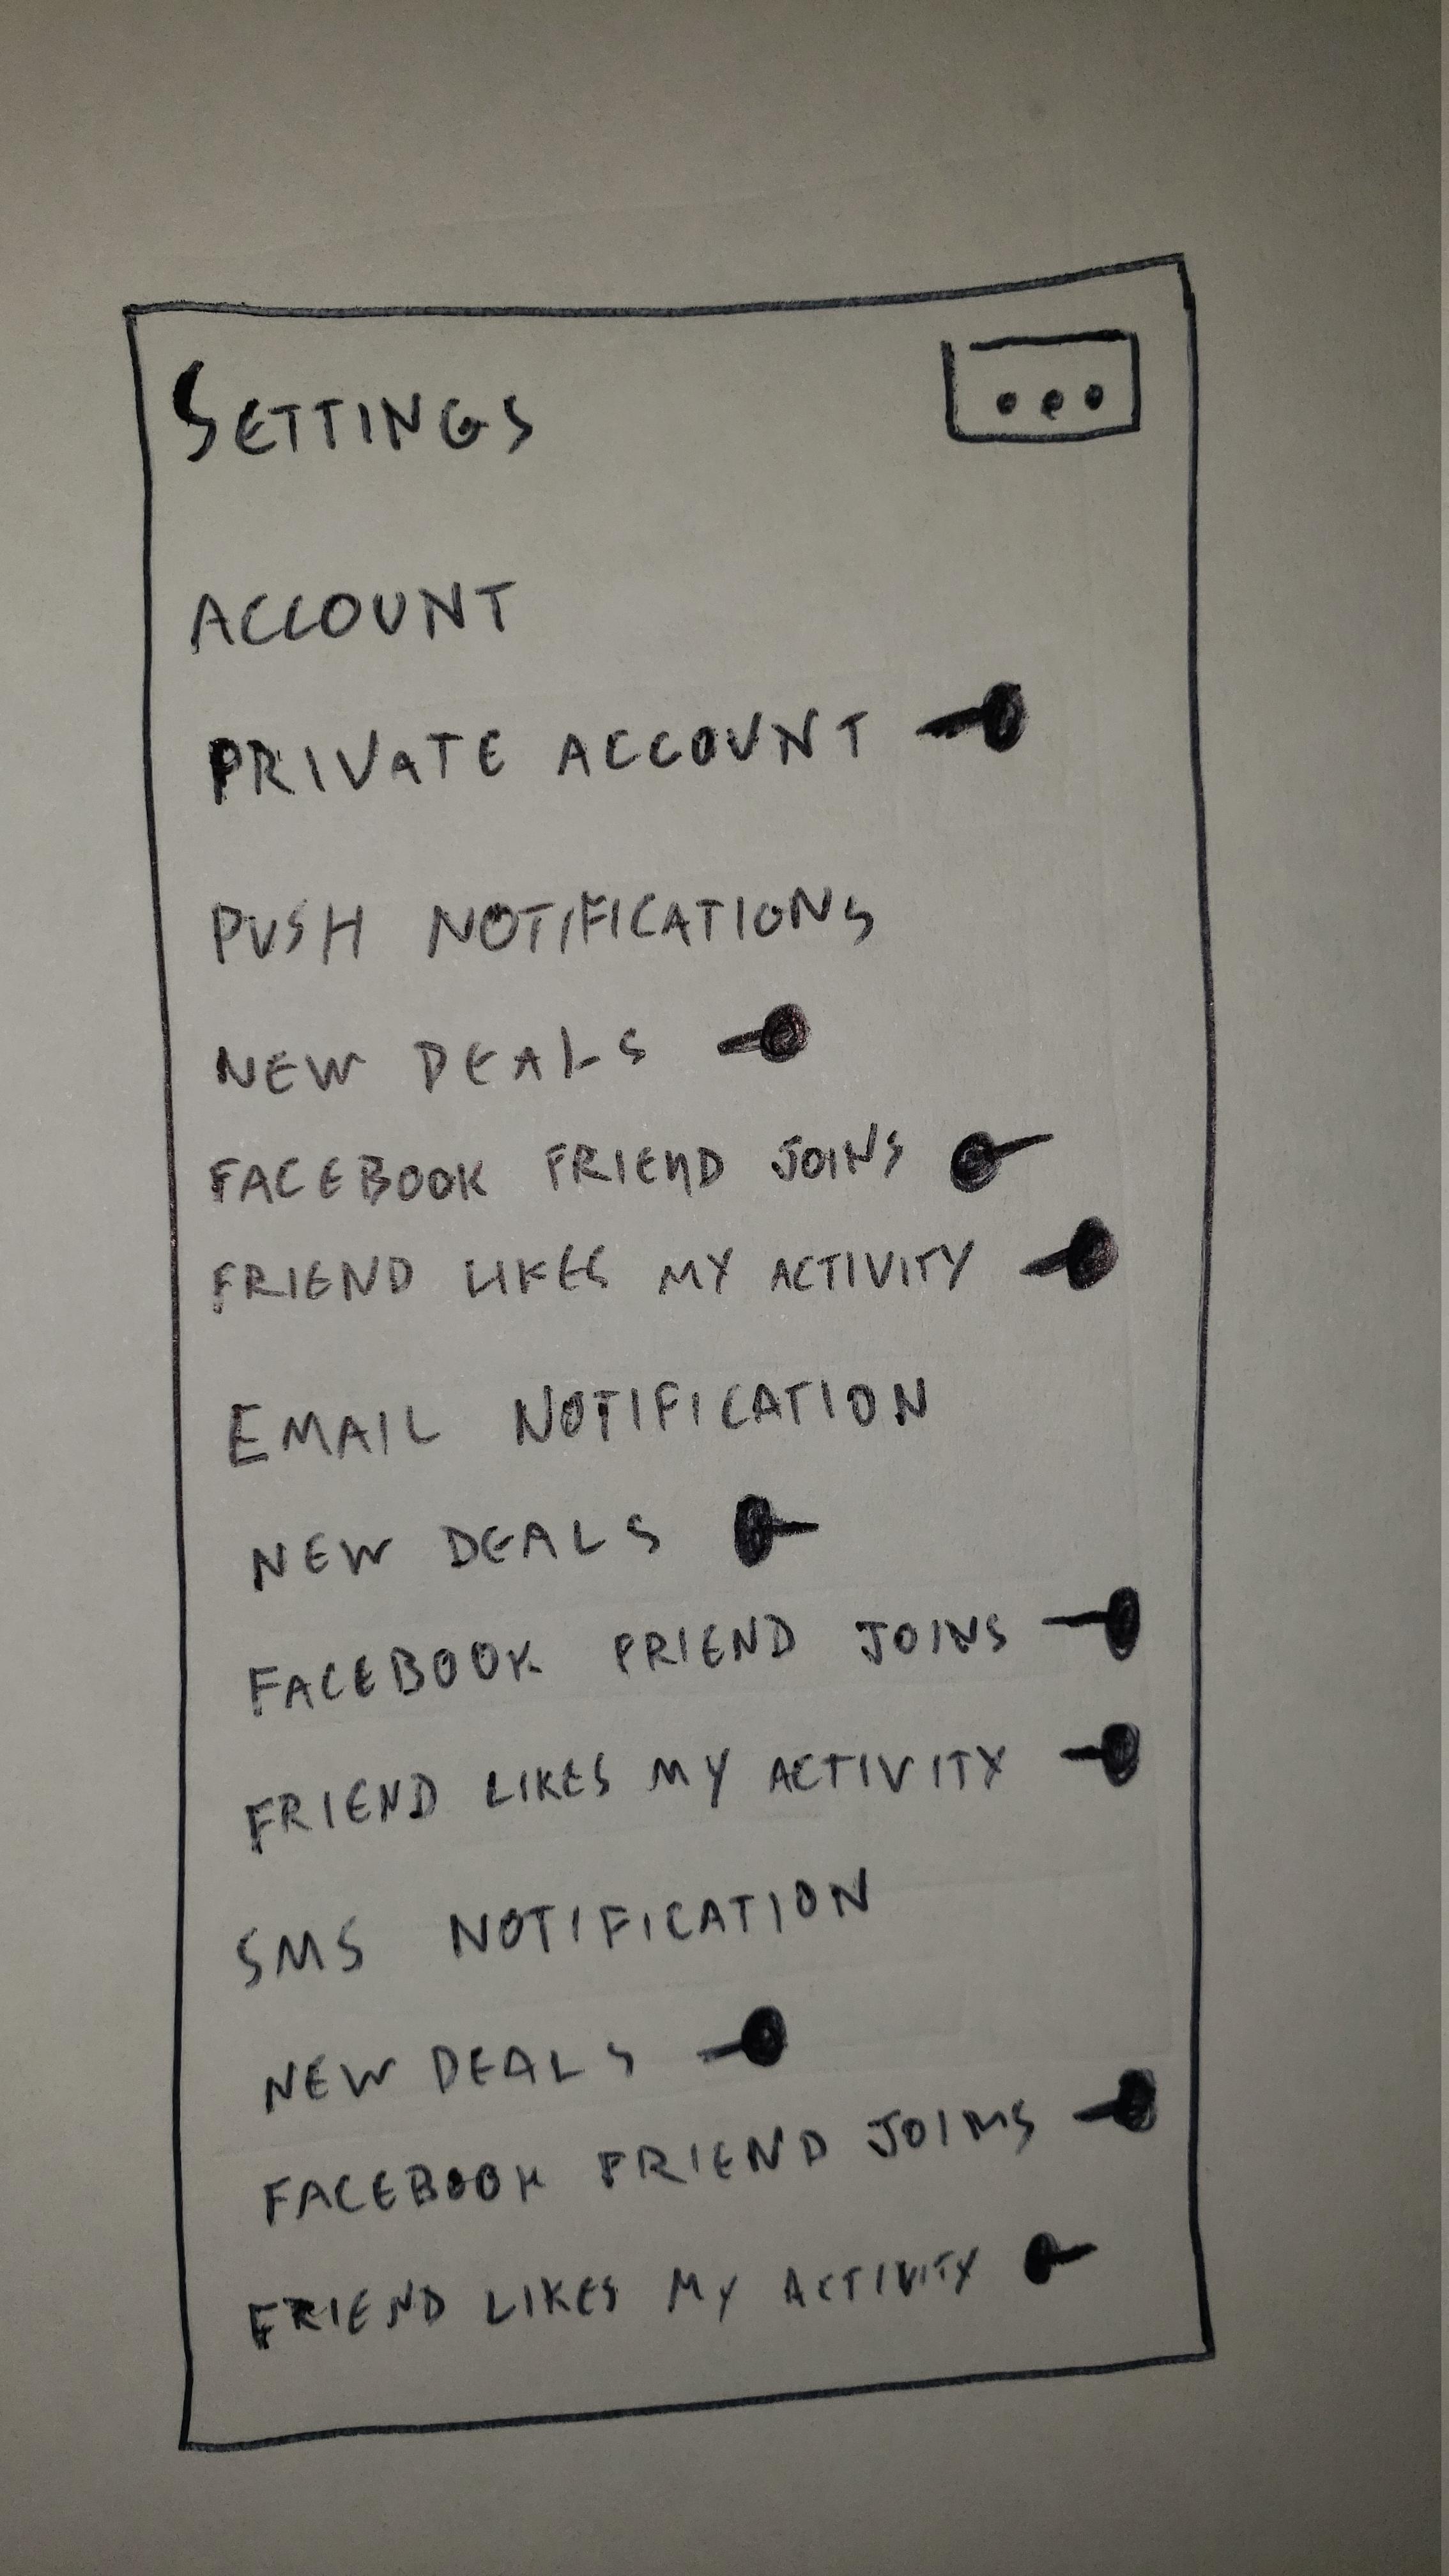 SETTINGS
ACCOUNT
PRIVATE ACCOUNT
PUSH NOTIFICATIONS
NEW DEALS
FACEBOOK FRIEND JOINS
FRIEND LIKES MY ACTIVITY
EMAIL NOTIFICATION
NEW DEALS
FACEBOOK FRIEND JOINS
FRIEND LIKES MY ACTIVITY
SMS NOTIFICATION
NEW DEALS
FACEBOOK FRIEND JOINS
FRIEND LIKES MY ACTIVITY